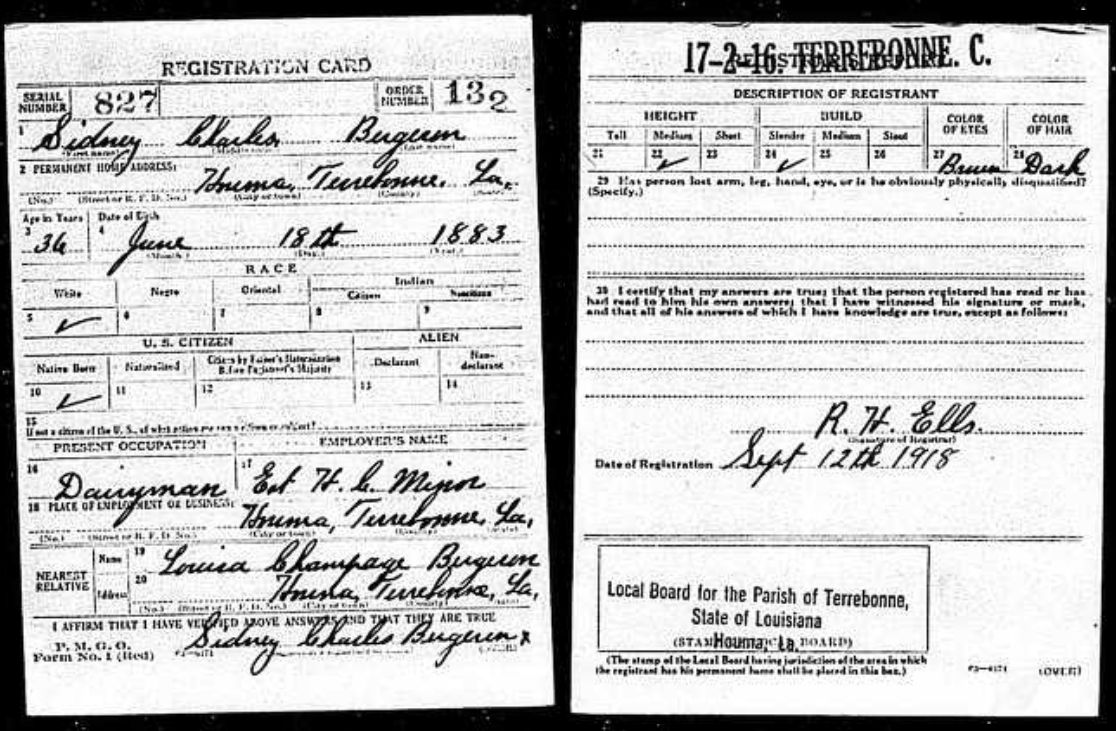 REGISTRATION CARD
SERIAL NUMBER 827 ORDER NUMBER 132
1 Sidney Charles Bergeron
(First name) (Middle name) (Last name)
2 PERMANENT HOME ADDRESS:
Houma, Terrebonne, La.
(No.) (Street or R. F. D. No.) (City or town) (County) (State)
Age in Years Date of Birth
3 36 4 June 18th 1883
(Month.) (Day.) (Year.)
RACE
White Negro Oriental Indian
Citizen Noncitizen
5 ✓ 6 7 8 9
U. S. CITIZEN ALIEN
Native Born Naturalized Citizen by Father's Naturalization Before Registrant's Majority Declarant Non-declarant
10 ✓ 11 12 13 14
15
If not a citizen of the U. S., of what nation are you a citizen or subject?
PRESENT OCCUPATION EMPLOYER'S NAME
16 Dairyman 17 Est H. C. Minor
18 PLACE OF EMPLOYMENT OR BUSINESS:
Houma, Terrebonne, La,
(No.) (Street or R. F. D. No.) (City or town) (County) (State)
NEAREST RELATIVE Name 19 Louisa Champage Bergeron
Address 20 Houma, Terrebonne, La,
(No.) (Street or R. F. D. No.) (City or town) (County) (State)
I AFFIRM THAT I HAVE VERIFIED ABOVE ANSWERS AND THAT THEY ARE TRUE
P. M. G. O.
Form No. 1 (Red) Sidney Charles Bergeron x
17-2-16. TERREBONNE. C.
REGISTRAR'S REPORT
DESCRIPTION OF REGISTRANT
HEIGHT BUILD COLOR OF EYES COLOR OF HAIR
Tall Medium Short Slender Medium Stout
21 22 ✓ 23 24 ✓ 25 26 27 Brown 28 Dark
29 Has person lost arm, leg, hand, eye, or is he obviously physically disqualified?
(Specify.)
30 I certify that my answers are true; that the person registered has read or has
had read to him his own answers; that I have witnessed his signature or mark,
and that all of his answers of which I have knowledge are true, except as follows:
R. H. Ells.
(Signature of Registrar)
Date of Registration Sept 12th 1918
Local Board for the Parish of Terrebonne,
State of Louisiana
Houma, La.
(STAMP OF LOCAL BOARD)
(The stamp of the Local Board having jurisdiction of the area in which
the registrant has his permanent home shall be placed in this box.)
(OVER)